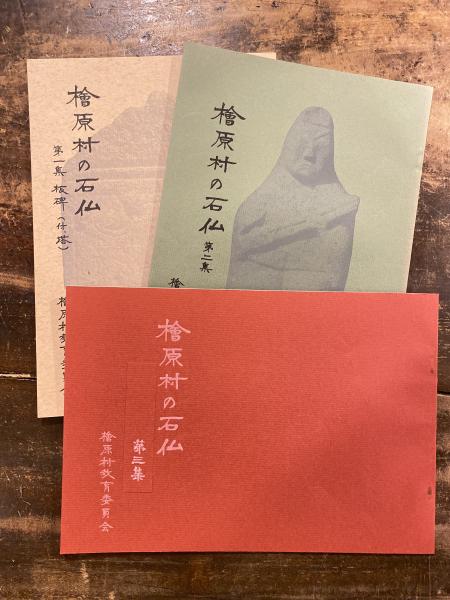 檜原村の石仏
第一集 板碑(付・塔)
檜原村教
檜原村の石仏
第二集
檜
檜原村の石仏
第三集
檜原村教育委員会